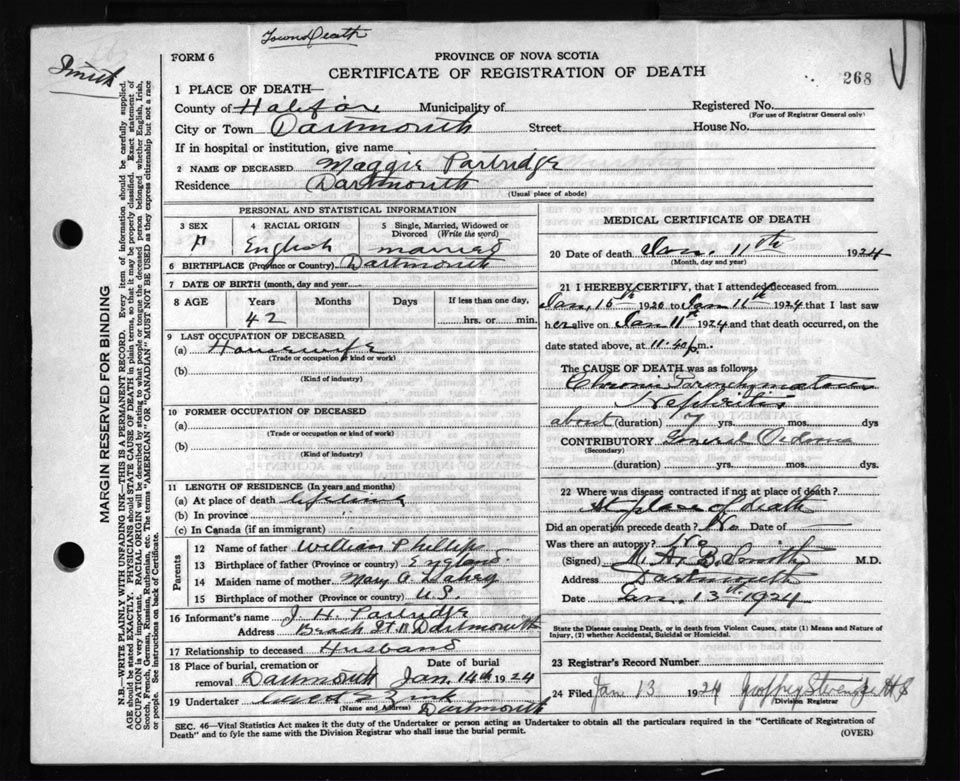 Town Death
Smith
FORM 6
PROVINCE OF NOVA SCOTIA
CERTIFICATE OF REGISTRATION OF DEATH
268
1 PLACE OF DEATH—
County of Halifax Municipality of Registered No.
(For use of Registrar General only)
City or Town Dartmouth Street House No.
If in hospital or institution, give name
2 NAME OF DECEASED Maggie Partridge
Residence Dartmouth
(Usual place of abode)
PERSONAL AND STATISTICAL INFORMATION
3 SEX 4 RACIAL ORIGIN 5 Single, Married, Widowed or Divorced (Write the word)
F English married
6 BIRTHPLACE (Province or Country) Dartmouth
7 DATE OF BIRTH (month, day and year)
8 AGE Years Months Days If less than one day,
42 hrs. or min.
9 LAST OCCUPATION OF DECEASED
(a) Housewife
(Trade or occupation or kind or work)
(b)
(Kind of industry)
10 FORMER OCCUPATION OF DECEASED
(a)
(Trade or occupation or kind or work)
(b)
(Kind of industry)
11 LENGTH OF RESIDENCE (In years and months)
(a) At place of death lifetime
(b) In province "
(c) In Canada (if an immigrant)
Parents
12 Name of father William Phillips
13 Birthplace of father (Province or country) England
14 Maiden name of mother Mary A.
15 Birthplace of mother (Province or country) U.S.
16 Informant's name J. H. Partridge
Address Beach St N Dartmouth
17 Relationship to deceased Husband
18 Place of burial, cremation or removal Dartmouth Date of burial Jan. 14th 1924
19 Undertaker Zink
(Name and Address) Dartmouth
MEDICAL CERTIFICATE OF DEATH
20 Date of death Jan. 11th 1924
(Month, day and year)
21 I HEREBY CERTIFY, that I attended deceased from
Jan 15th 1920 to Jan 11th 1924 that I last saw
her alive on Jan 11th 1924 and that death occurred, on
date stated above, at 11.40 p.m.
The CAUSE OF DEATH was as follows:
Chronic Parenchymatous
Nephritis
about (duration) 7 yrs. mos. dys
CONTRIBUTORY General Oedema
(Secondary)
(duration) yrs. mos. dys.
22 Where was disease contracted if not at place of death?
At place of death
Did an operation precede death? No Date of
Was there an autopsy? No
(Signed) M. A. B. Smith M.D.
Address Dartmouth
Date Jan. 13th 1924
State the Disease causing Death, or in death from Violent Causes, state (1) Means and Nature of Injury, (2) whether Accidental, Suicidal or Homicidal.
23 Registrar's Record Number
24 Filed Jan 13 1924
Division Registrar
SEC. 46—Vital Statistics Act makes it the duty of the Undertaker or person acting as Undertaker to obtain all the particulars required in the "Certificate of Registration of
Death" and to fyle the same with the Division Registrar who shall issue the burial permit.
(OVER)
MARGIN RESERVED FOR BINDING
N.B.—WRITE PLAINLY WITH UNFADING INK—THIS IS A PERMANENT RECORD. Every item of information should be carefully supplied.
AGE should be stated EXACTLY. PHYSICIANS should STATE CAUSE OF DEATH in plain terms, so that it may be properly classified. Exact statement of
OCCUPATION is very important. RACIAL ORIGIN will be described by stating to what people or tongue the deceased person belonged whether English, Irish,
Scotch, French, German, Russian, Ruthenian, etc. The terms "AMERICAN" or "CANADIAN" MUST NOT BE USED as they express citizenship but not a race
or people. See instructions on back of Certificate.